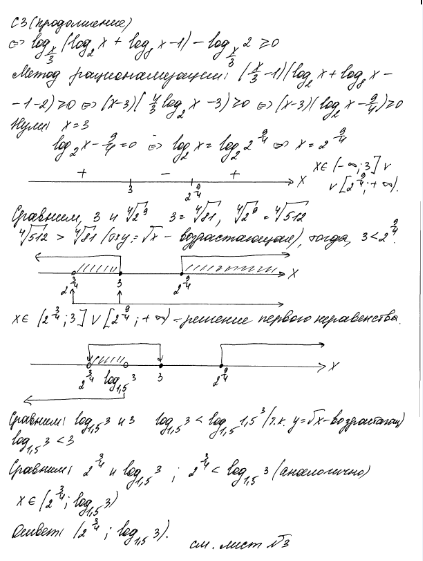 С3 (продолжение)
⇔ log_{x/3} (log₂x + log₈x - 1) - log_{x/3} 2 ≥ 0
Метод рационализации: (x/3 - 1)(log₂x + log₈x -
- 1 - 2) ≥ 0 ⇔ (x-3)(4/3 log₂x - 3) ≥ 0 ⇔ (x-3)(log₂x - 9/4) ≥ 0
Нули: x = 3
log₂x - 9/4 = 0 ⇔ log₂x = log₂2^{9/4} ⇔ x = 2^{9/4}
+ - + x∈(-∞; 3] ∪
3 2^{9/4} x ∪ [2^{9/4}; +∞).
Сравним, 3 и ⁴√2⁹ 3 = ⁴√81, ⁴√2⁹ = ⁴√512
⁴√512 > ⁴√81 (y = √x - возрастающая), тогда, 3 < 2^{9/4}.
2^{3/4} 3 2^{9/4} x
x∈(2^{3/4}; 3] ∪ [2^{9/4}; +∞) - решение первого неравенства.
2^{3/4} log_{1,5}3 3 2^{9/4} x
Сравним: log_{1,5}3 и 3 log_{1,5}3 < log_{1,5}1,5³ (т.к. y = √x - возрастающ)
log_{1,5}3 < 3
Сравним: 2^{3/4} и log_{1,5}3 ; 2^{3/4} < log_{1,5}3 (аналогично)
x∈(2^{3/4}; log_{1,5}3)
Ответ: (2^{3/4}; log_{1,5}3).
см. лист №3